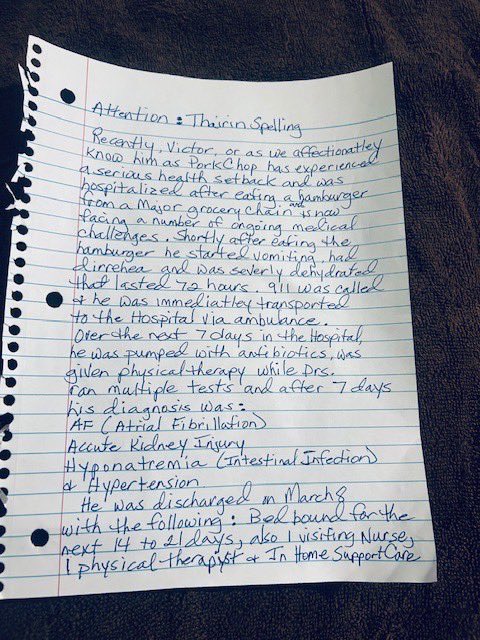 Attention : Thairin Spelling
Recently, Victor, or as we affectionatley
know him as PorkChop has experienced
a serious health setback and was
hospitalized after eating a hamburger
from a Major grocery chain and is now
facing a number of ongoing medical
challenges. Shortly after eating the
hamburger he started vomiting, had
dirrehea and was severly dehydrated
that lasted 72 hours. 911 was called
& he was immediatley transported
to the Hospital via ambulance.
Over the next 7 days in the Hospital,
he was pumped with antibiotics, was
given physical therapy while Drs.
ran multiple tests and after 7 days
his diagnosis was:
AF (Atrial Fibrillation)
Accute Kidney Injury
Hyponatremia (Intestinal Infection)
& Hypertension
He was discharged on March 8
with the following : Bed bound for the
next 14 to 21 days, also 1 visiting Nurse,
1 physical therapyst & In Home Support Care